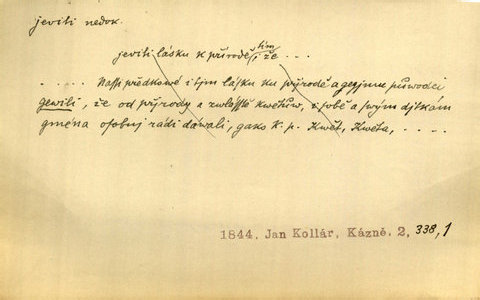 jeviti nedok.
jeviti lásku k přírodě tím i že ...
..... Nassi předkowé i tjm lásku ku přjrodě a gegjmu půwodci
gewili, že od přjrody a zwlásstě kwětůw, i sobě a swým djtkám
gména osobnj rádi dáwali, gako k. p. Kwět, Kwěta, .....
1844, Jan Kollár, Kázně. 2, 338,1